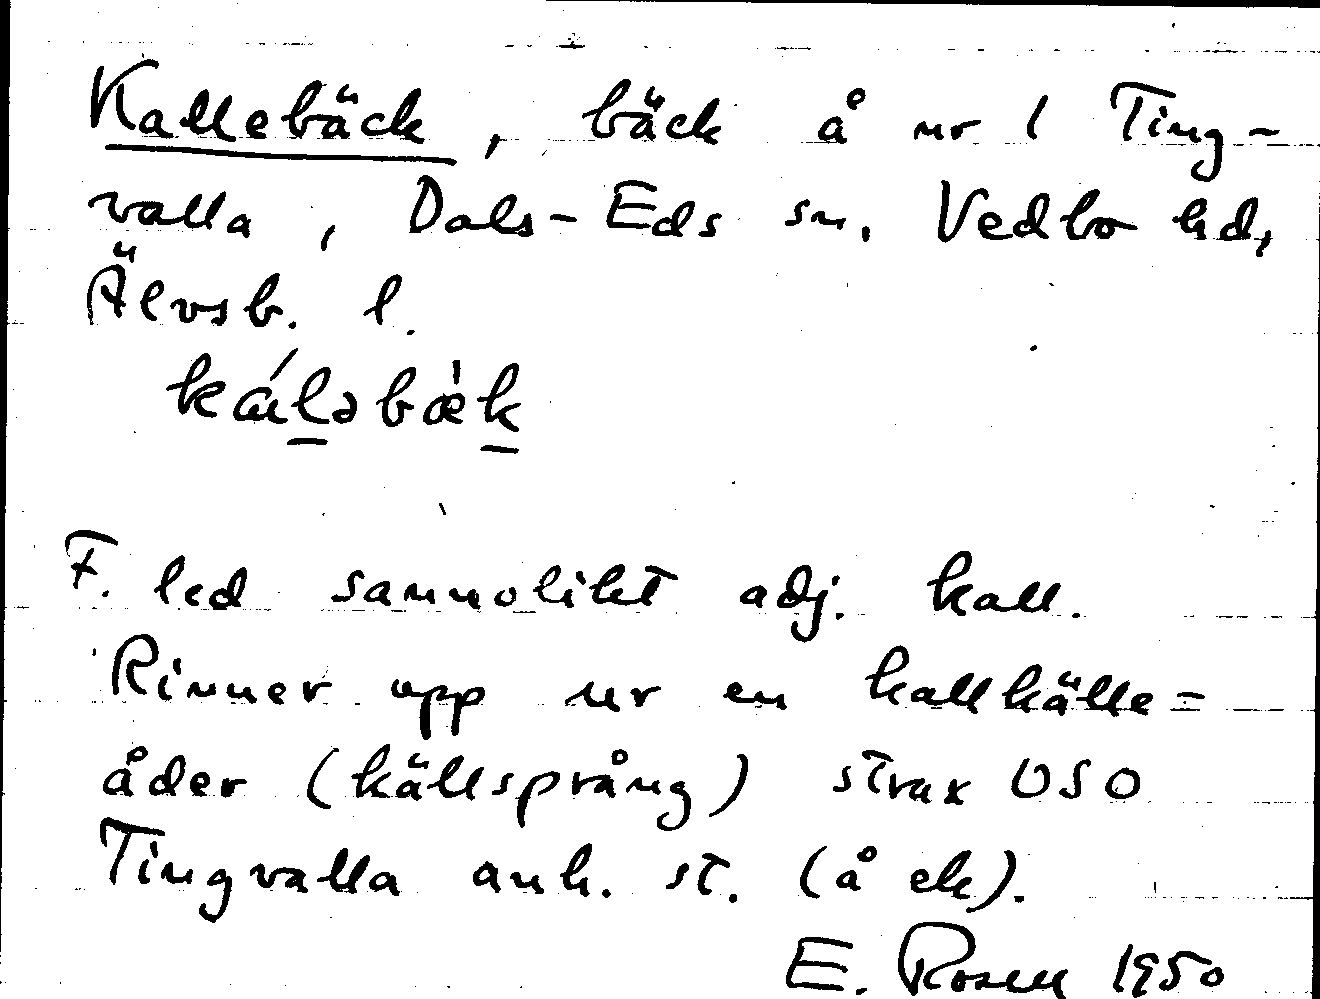 Kallebäck, bäck å nr 1 Ting-
valla, Dals-Eds sn, Vedbo hd,
Älvsb. l.
káləbæ̀k
F. led sannolikt adj. kall.
Rinner upp ur en kallkälle-
åder (källsprång) strax OSO
Tingvalla anh. st. (å ek).
E. Rosell 1950